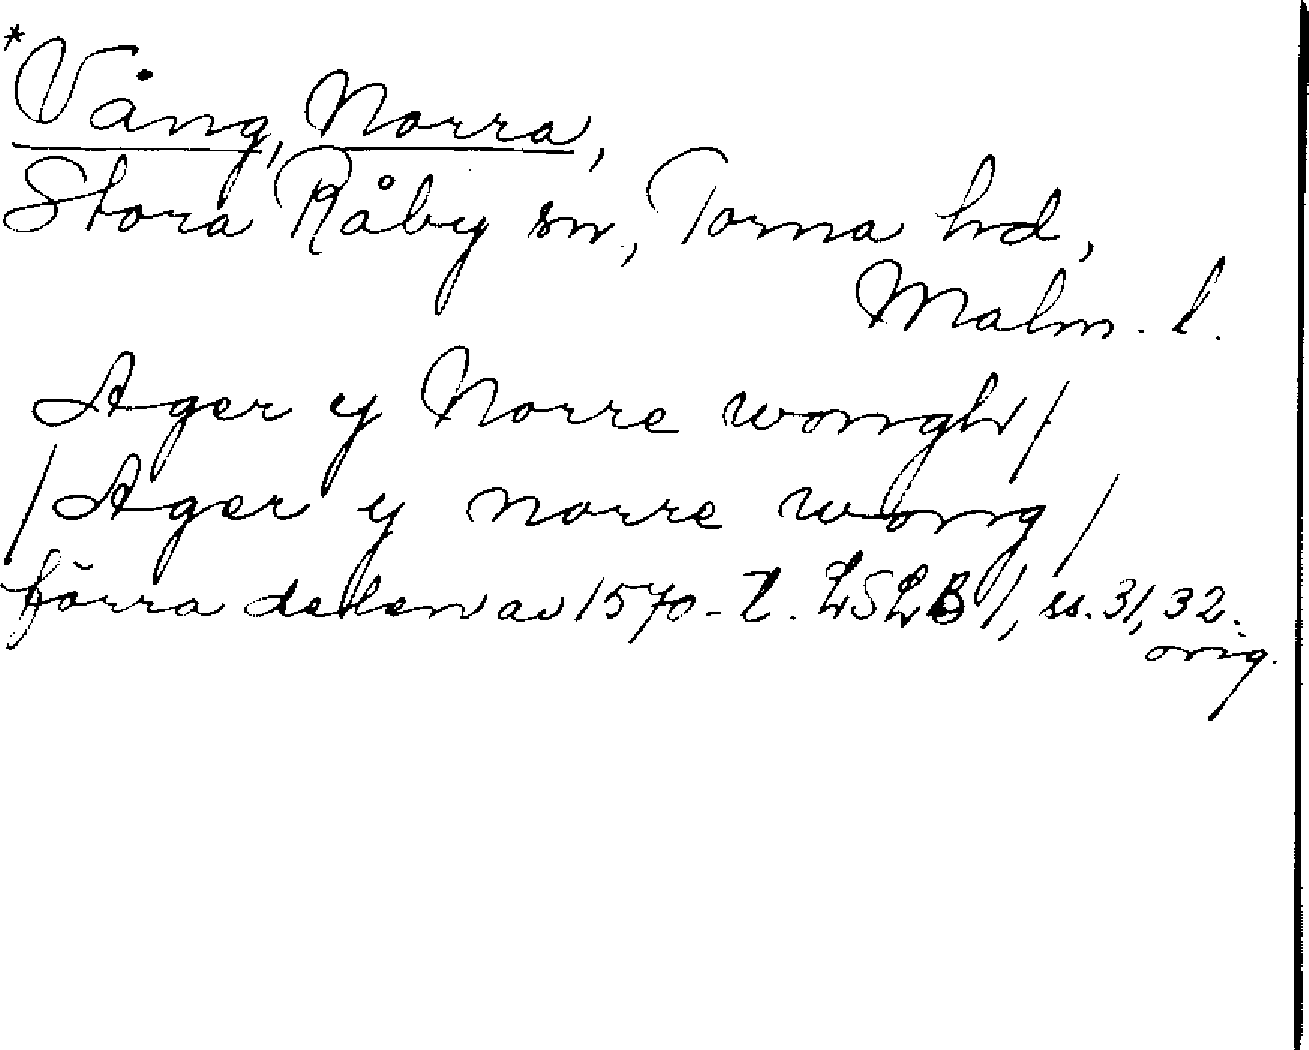 *Vång, Norra,
Stora Råby sn, Torna hd,
Malm. l.
Ager y Norre wongh/
/Ager y norre wong/
förra delen av 1570-t. LSLB 1, ss. 31, 32.
orig.